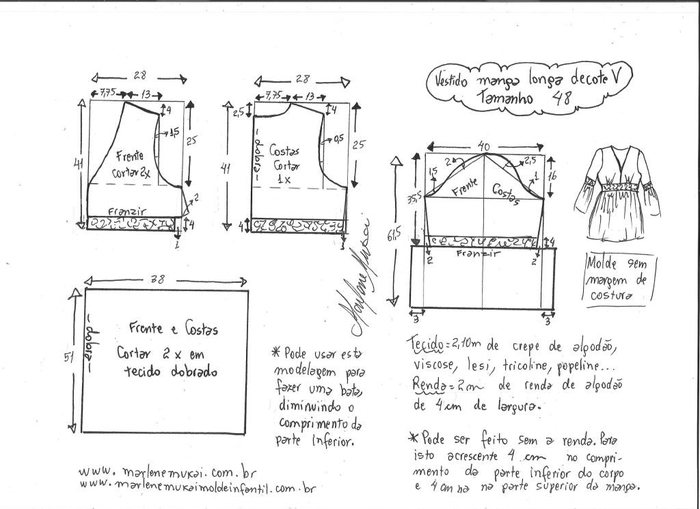 Vestido manga longa decote V
Tamanho 48
28
7,75 13
4
1,5
25
41
Frente
cortar 2x
2
Franzir
4
1
28
7,75 13
2,5
4
0,5
25
41
dobra
Costas
Cortar
1x
4
3
40
1,5
2
2,5
1
16
Frente
Costas
35,5
61,5
4
2
Franzir
2
3
3
Molde sem
margem de
costura
38
dobra
Frente e Costas
Cortar 2 x em
tecido dobrado
Marlene Mukai
* Pode usar esta
modelagem para
fazer uma bata,
diminuindo o
comprimento da
parte inferior.
Tecido = 2,10m de crepe de algodão,
viscose, lesi, tricoline, popeline...
Renda = 2m de renda de algodão
de 4 cm de largura.
* Pode ser feito sem a renda. Para
isto acrescente 4 cm no compri-
mento da parte inferior do corpo
e 4 cm na na parte superior da manga.
www.marlenemukai.com.br
www.marlenemukaimoldeinfantil.com.br